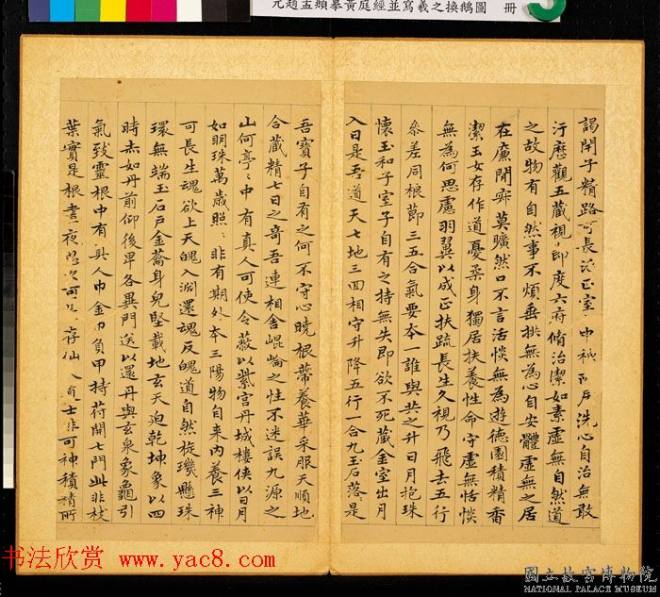 元趙孟頫摹黃庭經並寫羲之換鵝圖 冊
谒閉子精路可長 正室 中 戶洗心自治無敢
汙歷觀五藏視節度六府脩治潔如素虛無自然道
之故物有自然事不煩垂拱無為心自安體虛無之居
在廉閒 莫曠然口不言活惔無為遊德園積精香
潔玉女存作道憂柔身獨居扶養性命守虛無恬惔
無為何思慮羽翼以成正扶疏長生久視乃飛去五行
叅差同根節三五合氣要本一誰與共之升日月抱珠
懷玉和子室子自有之持無失即欲不死藏金室出月
入日是吾道天七地三四相守升降五行一合九玉石落是
吾寶子自有之何不守心曉根蒂養華采服天順地
合藏精七日之奇吾連相舍崐崘之性不迷誤九源之
山何亭〻中有真人可使令蔽以紫宮丹城樓俠以日月
如明珠萬歲照〻非有期外本三陽物自来內養三神
可長生魂欲上天魄入淵還魂反魄道自然旋璣懸珠
環無端玉石戶金籥身皃堅載地玄天迫乾坤象以四
時赤如丹前仰後卑各異門送以還丹與玄泉象龜引
氣致靈根中有真人巾金巾負甲持苻開七門此非枝
葉實是根晝夜思 可 存仙人 士非可神積精所
书法欣赏 www.yac8.com
國立故宮博物院
NATIONAL PALACE MUSEUM